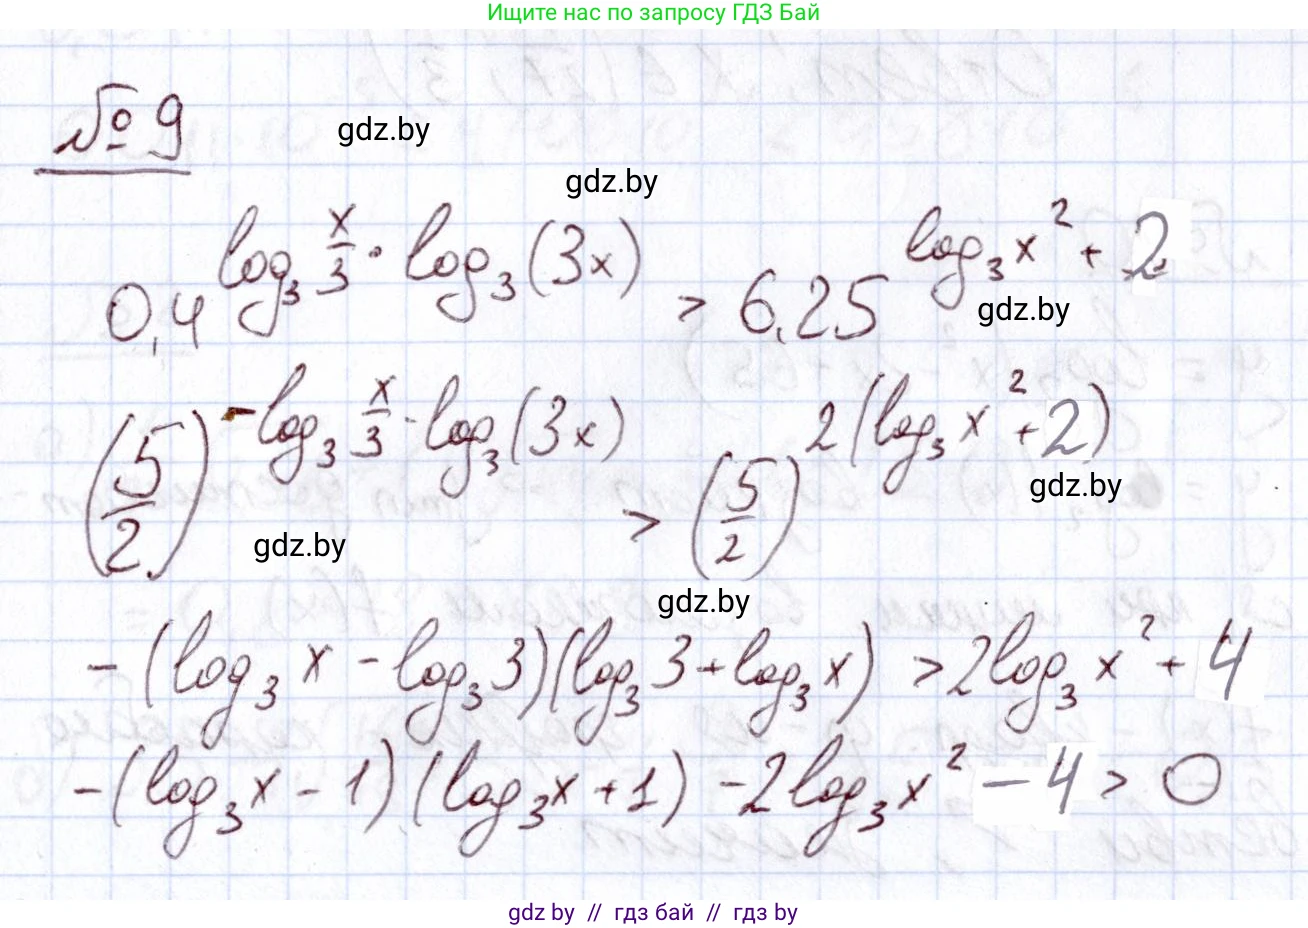 Ищите нас по запросу ГДЗ Бай
№ 9
gdz.by
gdz.by
0,4^(log₃ x/3 · log₃(3x)) > 6,25^(log₃x² + 2)
gdz.by
(5/2)^(-log₃ x/3 · log₃(3x)) > (5/2)^(2(log₃x² + 2))
gdz.by
gdz.by
gdz.by
-(log₃x - log₃3)(log₃3 + log₃x) > 2log₃x² + 4
-(log₃x - 1)(log₃x + 1) - 2log₃x² - 4 > 0
gdz by // гдз бай // гдз by